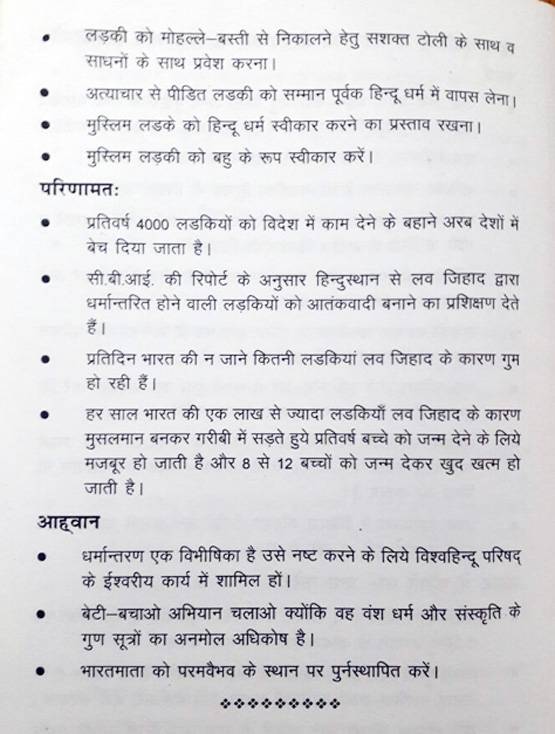 • लडकी को मोहल्ले–बस्ती से निकालने हेतु सशक्त टोली के साथ व
साधनों के साथ प्रवेश करना।
• अत्याचार से पीडित लडकी को सम्मान पूर्वक हिन्दू धर्म में वापस लेना।
• मुस्लिम लडके को हिन्दू धर्म स्वीकार करने का प्रस्ताव रखना।
• मुस्लिम लडकी को बहु के रूप स्वीकार करें।
परिणामतः
• प्रतिवर्ष 4000 लडकियों को विदेश में काम देने के बहाने अरब देशों में
बेच दिया जाता है।
• सी.बी.आई. की रिपोर्ट के अनुसार हिन्दुस्थान से लव जिहाद द्वारा
धर्मान्तरित होने वाली लड़कियों को आतंकवादी बनाने का प्रशिक्षण देते
हैं।
• प्रतिदिन भारत की न जाने कितनी लडकियां लव जिहाद के कारण गुम
हो रही हैं।
• हर साल भारत की एक लाख से ज्यादा लडकियाँ लव जिहाद के कारण
मुसलमान बनकर गरीबी में सड़ते हुये प्रतिवर्ष बच्चे को जन्म देने के लिये
मजबूर हो जाती है और 8 से 12 बच्चों को जन्म देकर खुद खत्म हो
जाती है।
आह्वान
• धर्मान्तरण एक विभीषिका है उसे नष्ट करने के लिये विश्वहिन्दू परिषद्
के ईश्वरीय कार्य में शामिल हों।
• बेटी–बचाओ अभियान चलाओ क्योंकि वह वंश धर्म और संस्कृति के
गुण सूत्रों का अनमोल अधिकोष है।
• भारतमाता को परमवैभव के स्थान पर पुर्नस्थापित करें।